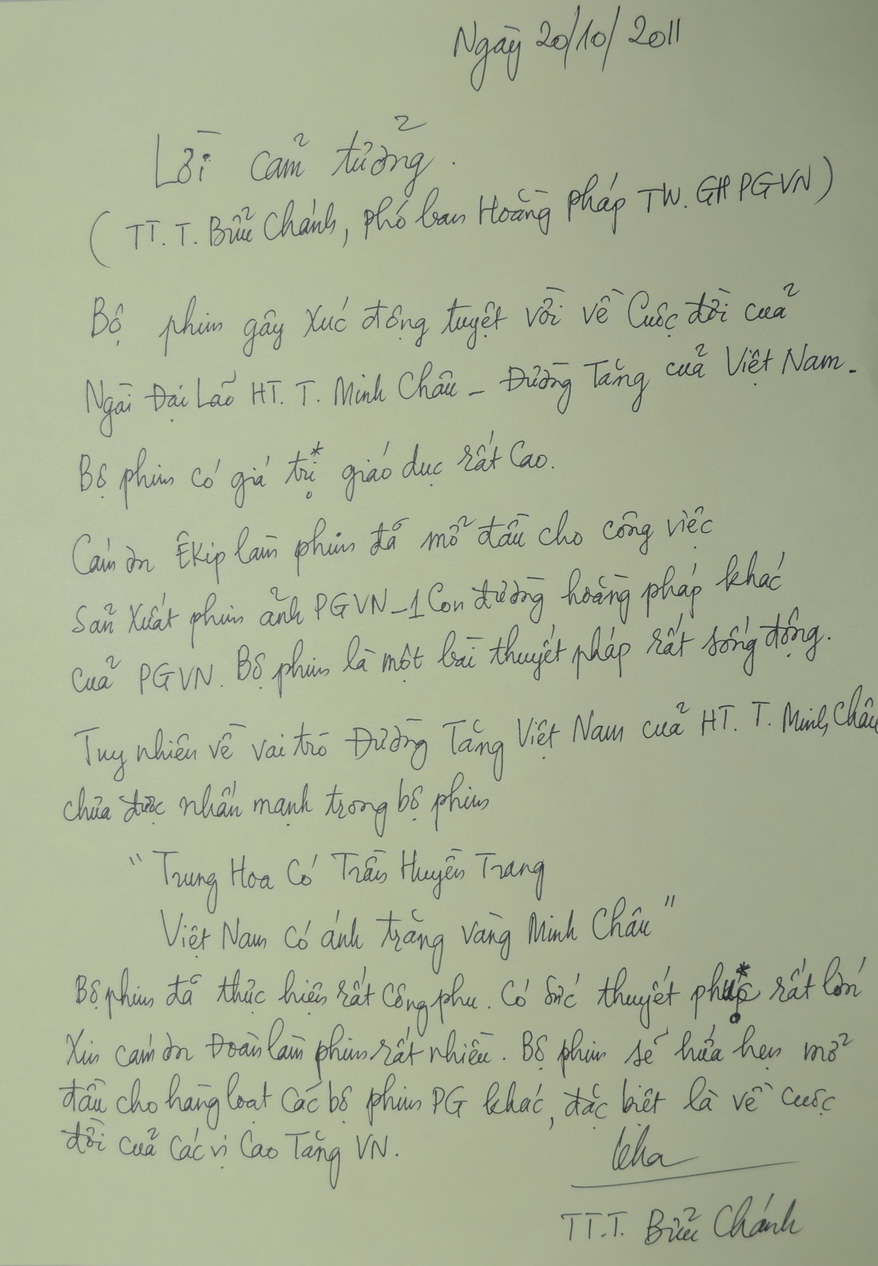 Ngày 20/10/2011
Lời cảm tưởng.
(TT.T. Bửu Chánh, phó ban Hoằng pháp TW. GHPGVN)
Bộ phim gây xúc động tuyệt vời về Cuộc đời của
Ngài Đại Lão HT. T. Minh Châu - Đường Tăng của Việt Nam.
Bộ phim có giá trị giáo dục rất Cao.
Cám ơn Êkip làm phim đã mở đầu cho công việc
Sản Xuất phim ảnh PGVN - 1 Con đường hoằng pháp khác
của PGVN. Bộ phim là một bài thuyết pháp rất sống động.
Tuy nhiên về vai trò Đường Tăng Việt Nam của HT. T. Minh Châu
chưa được nhấn mạnh trong bộ phim
"Trung Hoa Có Trần Huyền Trang
Việt Nam có ánh trăng vàng Minh Châu"
Bộ phim đã thực hiện rất Công phu. Có sức thuyết phục rất lớn
Xin cám ơn Đoàn làm phim rất nhiều. Bộ phim sẽ hứa hẹn mở
đầu cho hàng loạt các bộ phim PG khác, đặc biệt là về cuộc
đời của các vị Cao Tăng VN.
TT.T. Bửu Chánh